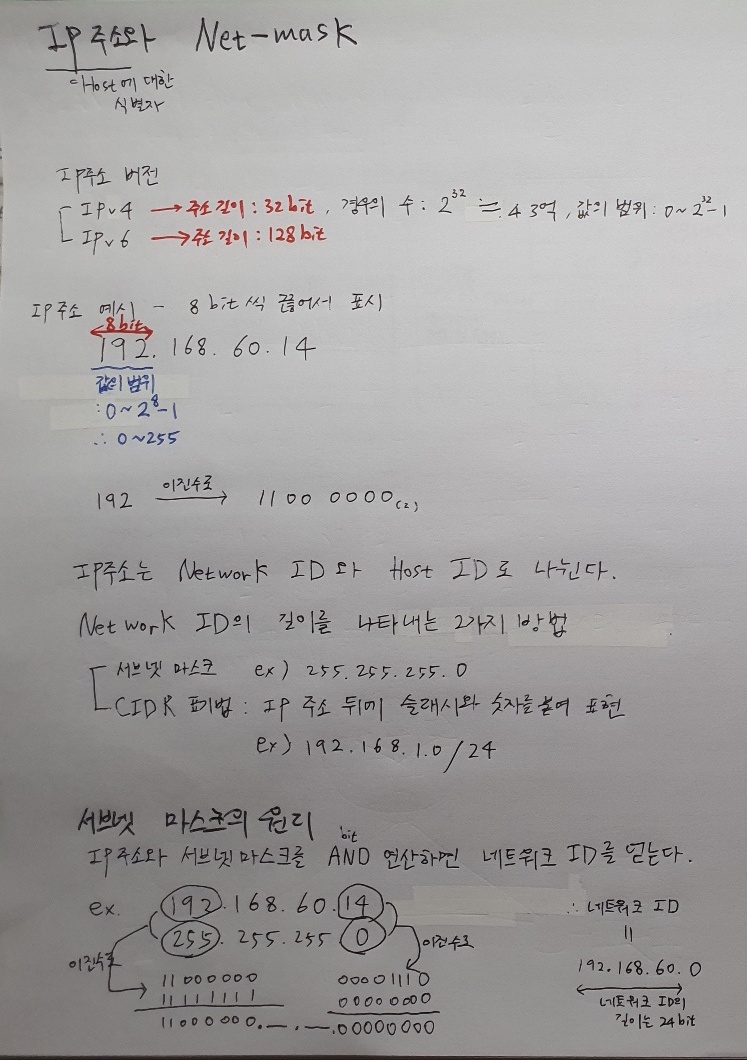 IP주소와 Net-mask
= Host에 대한
식별자
IP주소 버전
IPv4 → 주소길이 : 32bit, 경우의 수 : 2^32 ≒ 43억, 값의 범위 : 0~2^32-1
IPv6 → 주소길이 : 128bit
IP주소 예시 - 8bit씩 끊어서 표시
8bit
192.168.60.14
값의 범위
: 0~2^8-1
∴ 0~255
192 이진수로 → 1100 0000(2)
IP주소는 Network ID와 Host ID로 나뉜다.
Network ID의 길이를 나타내는 2가지 방법
서브넷 마스크 ex) 255.255.255.0
CIDR 표기법 : IP 주소 뒤에 슬래시와 숫자를 붙여 표현
ex) 192.168.1.0/24
서브넷 마스크의 원리
bit
IP주소와 서브넷마스크를 AND 연산하면 네트워크 ID를 얻는다.
ex. 192.168.60.14
255.255.255.0
이진수로
11000000
11111111
11000000.-.-.00000000
이진수로
00001110
00000000
∴ 네트워크 ID
=
192.168.60.0
네트워크 ID의
길이는 24bit